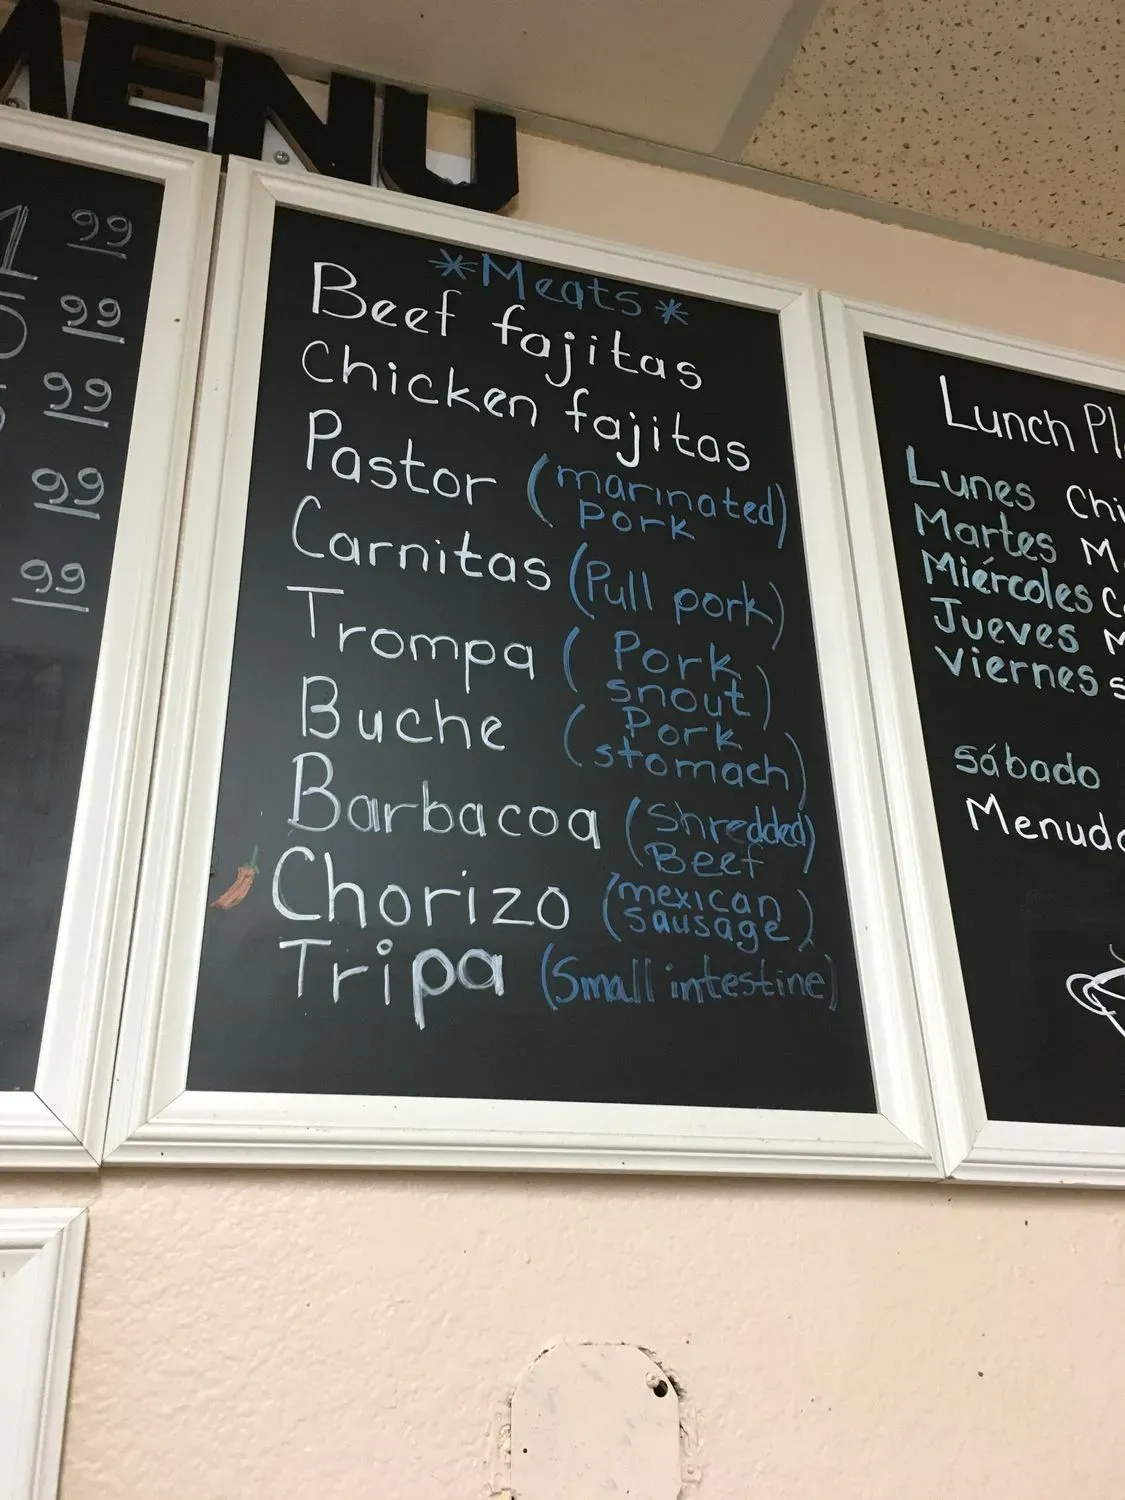 MENU
99
99
99
99
99
*Meats*
Beef fajitas
Chicken fajitas
Pastor (marinated)
pork
Carnitas (Pull pork)
Trompa (Pork
snout)
Buche (Pork
stomach)
Barbacoa (Shredded)
Beef
Chorizo (mexican
sausage)
Tripa (Small intestine)
Lunch
Lunes
Martes
Miércoles
Jueves
Viernes
sábado